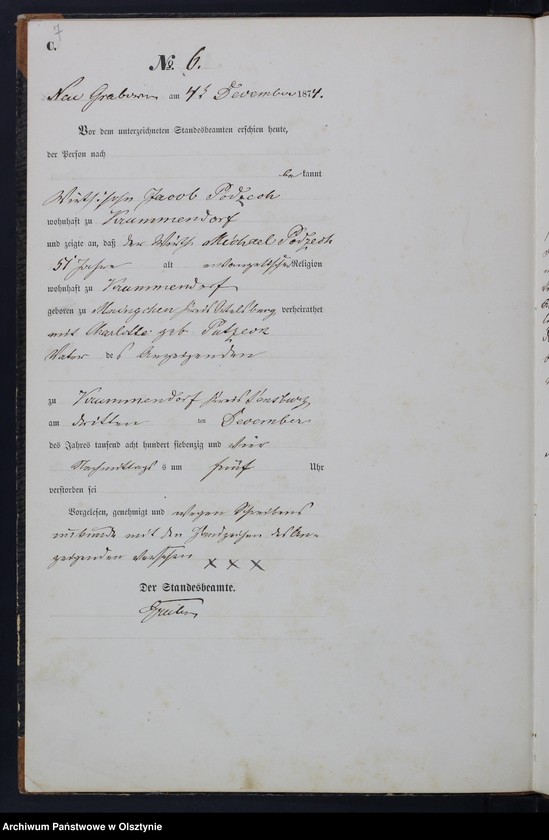 7
C.
№ 6.
Neu Grabowen am 4t December 1874.
Vor dem unterzeichneten Standesbeamten erschien heute,
der Person nach
be kannt
Wirthssohn Jacob Podzech
wohnhaft zu Krummendorf
und zeigte an, daß der Wirth Michael Podzech
51 Jahre alt evangelischer Religion
wohnhaft zu Krummendorf
geboren zu Maingchen Kreis Ortelsburg, verheirathet
mit Charlotte geb.
Vater des Anzeigenden
zu Krummendorf Kreis Sensburg
am dritten December
des Jahres tausend acht hundert siebenzig und vier
Nachmittags s um fünf Uhr
verstorben sei
Vorgelesen, genehmigt und wegen Schreibens
unkunde mit den Handzeichen des An-
zeigenden versehen XXX
Der Standesbeamte.
Archiwum Państwowe w Olsztynie